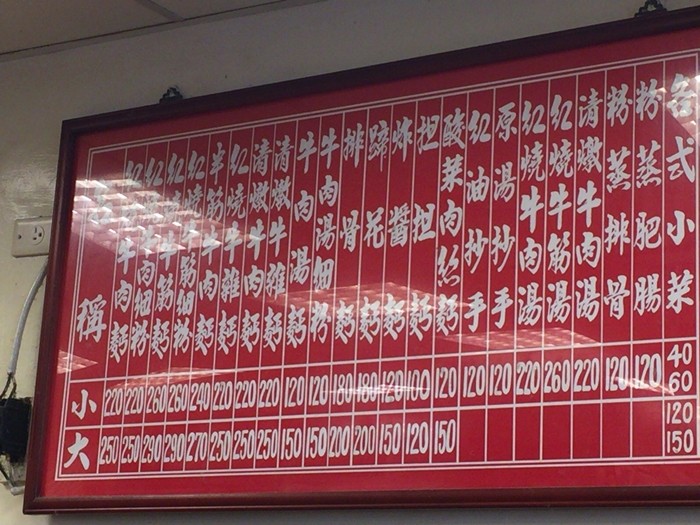 名稱
小
大
紅燒牛肉麵
220
250
紅燒牛肉細粉
220
250
紅燒牛筋麵
260
290
紅燒牛筋細粉
260
290
半筋半肉麵
240
270
紅燒牛雜麵
220
250
清燉牛肉麵
220
250
清燉牛雜麵
220
250
牛肉湯麵
120
150
牛肉湯細粉
120
150
排骨麵
180
200
蹄花麵
180
200
炸醬麵
120
150
担担麵
100
120
酸菜肉絲麵
120
150
紅油抄手
120
原湯抄手
120
紅燒牛肉湯
220
紅燒牛筋湯
260
清燉牛肉湯
220
粉蒸排骨
120
粉蒸肥腸
120
台式小菜
40
60
120
150